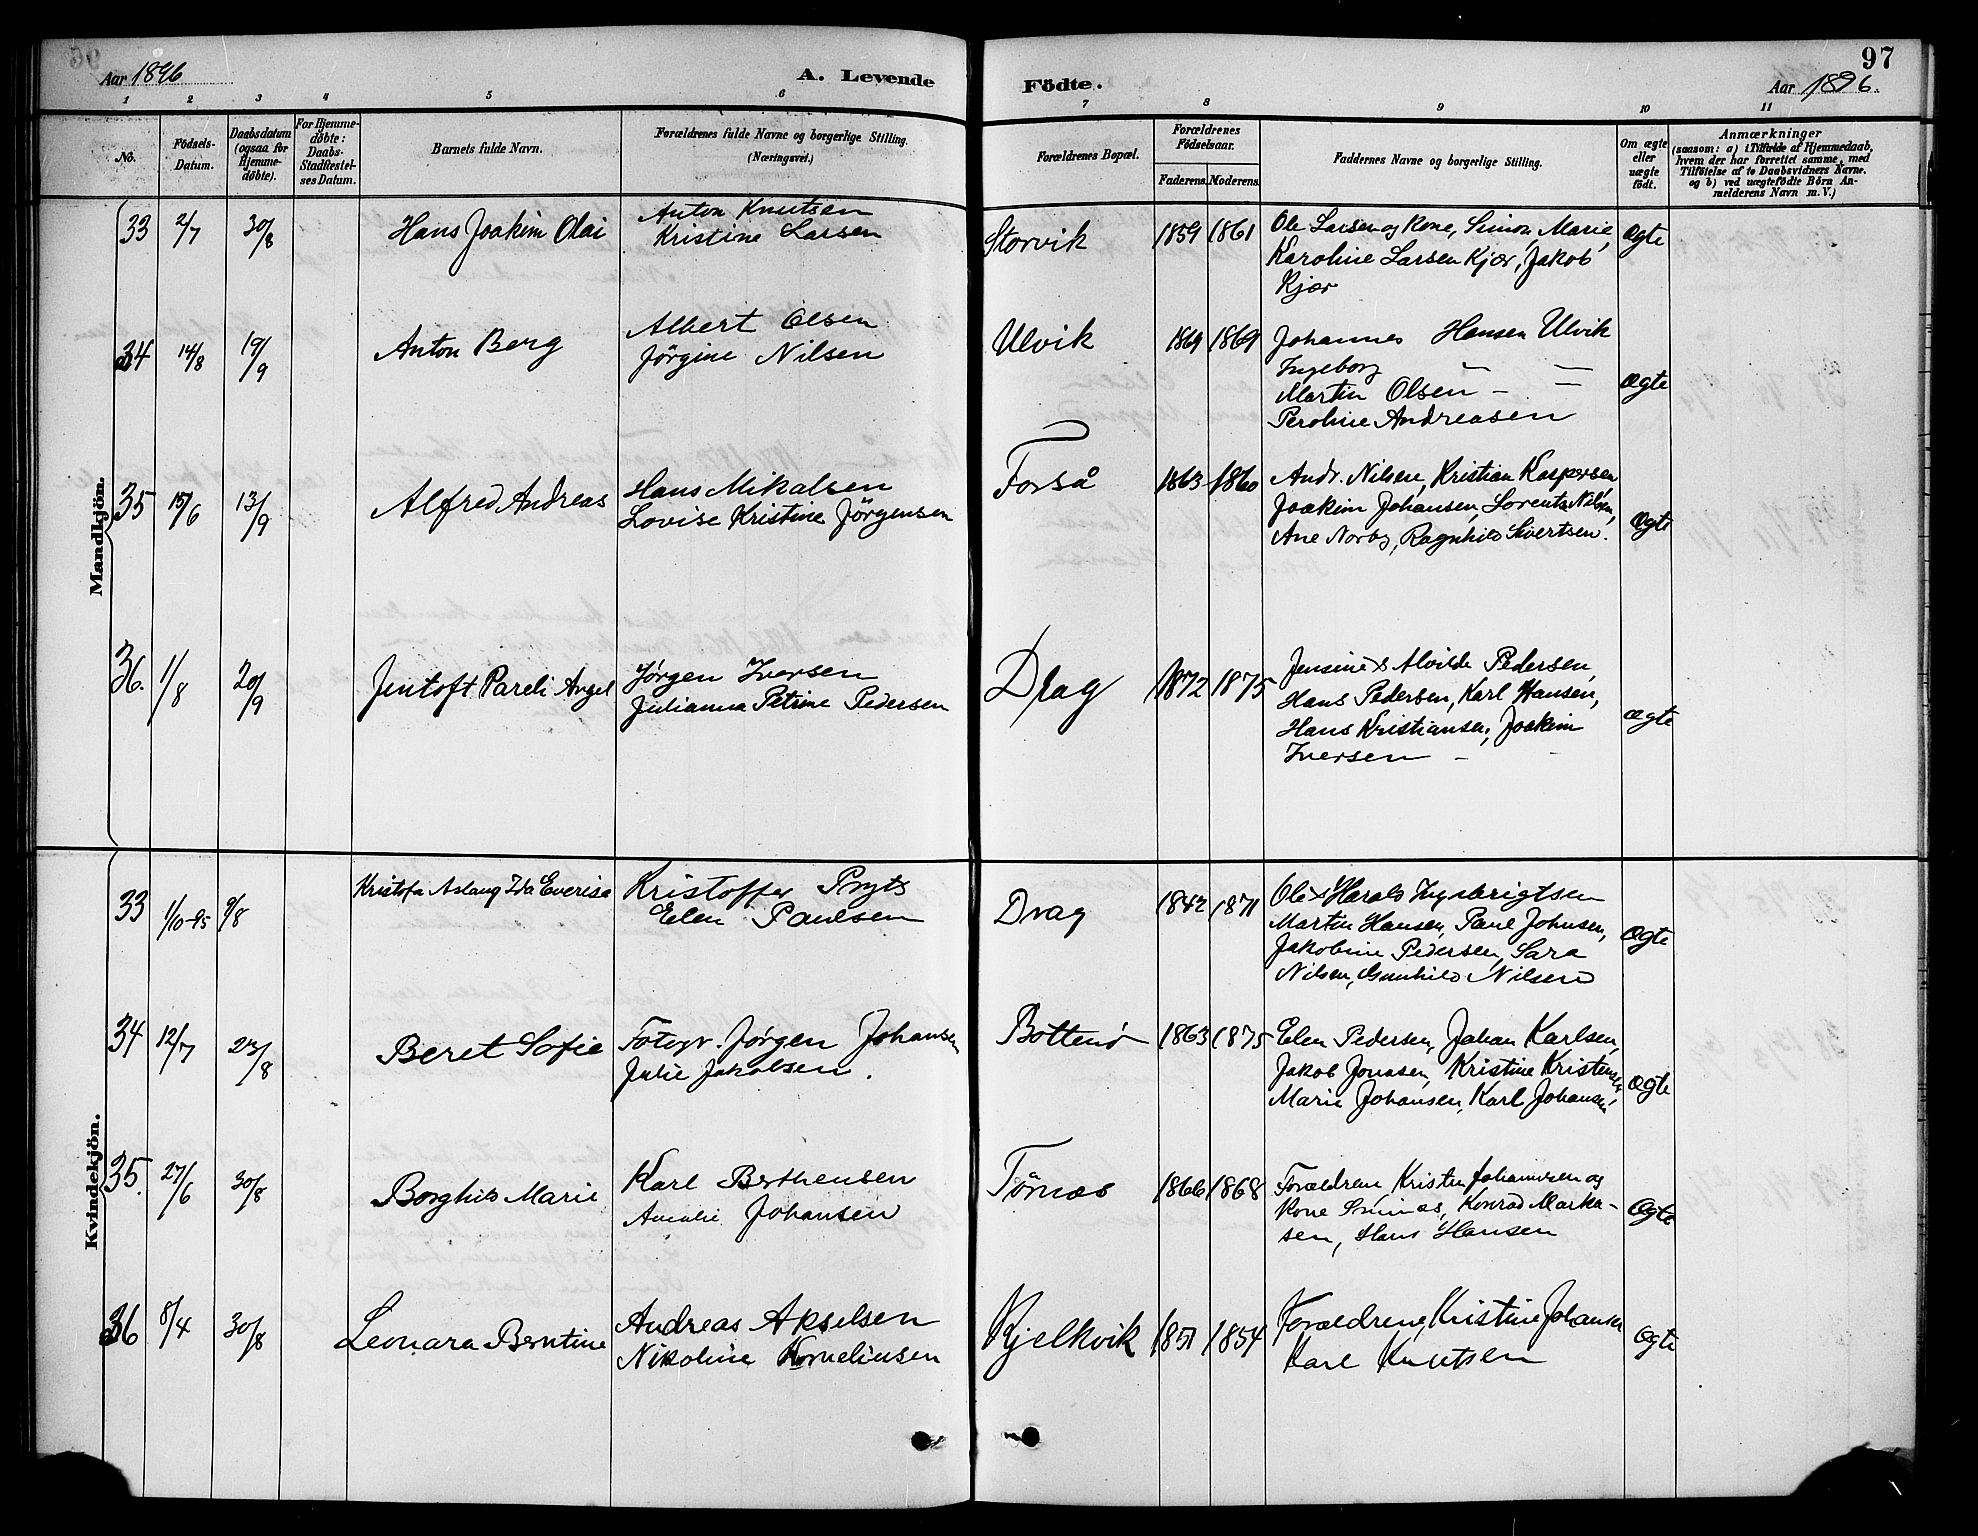 97
Aar 1896 A. Levende Födte. Aar 1896.
1 2 3 4 5 6 7 8 9 10 11
No.
Födsels-
Datum.
Daabsdatum
(ogsaa for
Hjemme-
døbte).
For Hjemme-
døbte:
Daabs-
Stadfestel-
ses Datum.
Barnets fulde Navn.
Forældrenes fulde Navne og borgerlige Stilling.
(Næringsvei.)
Forældrenes Bopæl.
Forældrenes
Födselsaar.
Faderens. Moderens.
Faddernes Navne og borgerlige Stilling.
Om ægte
eller
uægte
födt.
Anmærkninger
(saasom: a) i Tilfælde af Hjemmedaab,
hvem der har forrettet samme, med
Tilföielse af to Daabsvidners Navne.
og b) ved uægtefödte Börn An-
melderens Navn m. V.)
Mandkjön.
33 2/7 30/8 Hans Joakim Olai
Anton Knutsen
Kristine Larsen
Storvik 1859 1861
Ole Larsen og Kone, Simon, Marie,
Karoline Larsen Kjær, Jakob
Kjær
Ægte
34 14/8 19/9 Anton Berg
Albert Olsen
Jörgine Nilsen
Ulvik 1869 1869
Johannes Hansen Ulvik
Ingeborg — —
Martin Olsen - —
Peroline Andreasen
Ægte
35 15/6 13/9 Alfred Andreas
Hans Mikalsen
Lovise Kristine Jörgensen
Forså 1863 1860
Andr. Nilsen, Kristian Kaspersen,
Joakim Johansen, Lorents Nilsen,
Ane Norby, Ragnhild Sivertsen.
Ægte
36. 1/8 20/9 Jentoft Pareli Angel
Jørgen Iversen
Julianna Petrine Pedersen
Drag 1872 1875
Jensine & Alvilde Pedersen,
Hans Pedersen, Karl Hansen,
Hans Kristiansen, Joakim
Iversen -
ægte
Kvindekjön.
33 1/10-95 9/8 Kristofa Aslaug Ida Everise
Kristoffer Pryts
Elen Paulsen
Drag 1842 1871
Ole & Harald Ingebrigtsen
Martin Hansen, Paul Johnsen,
Jakobine Pedersen, Sara
Nilsen, Gunhild Nilsen
Ægte
34 12/7 23/8 Beret Sofie
Fotogr. Jørgen Johansen
Julie Jakobsen.
Bottenø 1863 1875
Elen Pedersen, Johan Karlsen,
Jakob Jonasen, Kristine Kristensen,
Marie Johansen, Karl Johansen,
Ægte
35. 27/6 30/8 Borghild Marie
Karl Berthensen
Amalie Johansen
Tårnæs 1866 1868
Forældrene Kristen Johannesen og
Kone, Konrad Marka-
sen, Hans Hansen
Ægte
36 8/4 30/8 Leonara Berntine
Andreas Akselsen
Nikoline Korneliusen
Kjelkvik 1851 1854
Forældrene, Kristine Johansen
Karl Knutsen
Ægte